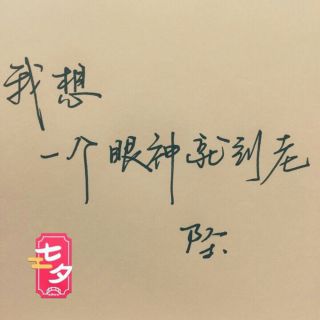 我想
一个眼神就到老
七夕